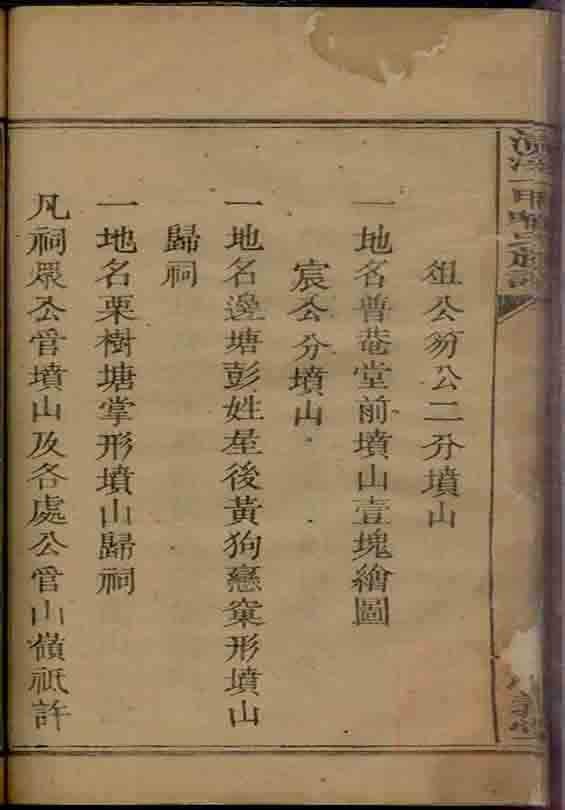 俎公分公二分墳山
一地名普菴堂前墳山壹塊繪圖
宸公分墳山
一地名邊塘彭姓屋後黃狗戀窠形墳山
歸祠
一地名栗樹塘掌形墳山歸祠
凡祠眾公管墳山及各處公管山嶺祇許